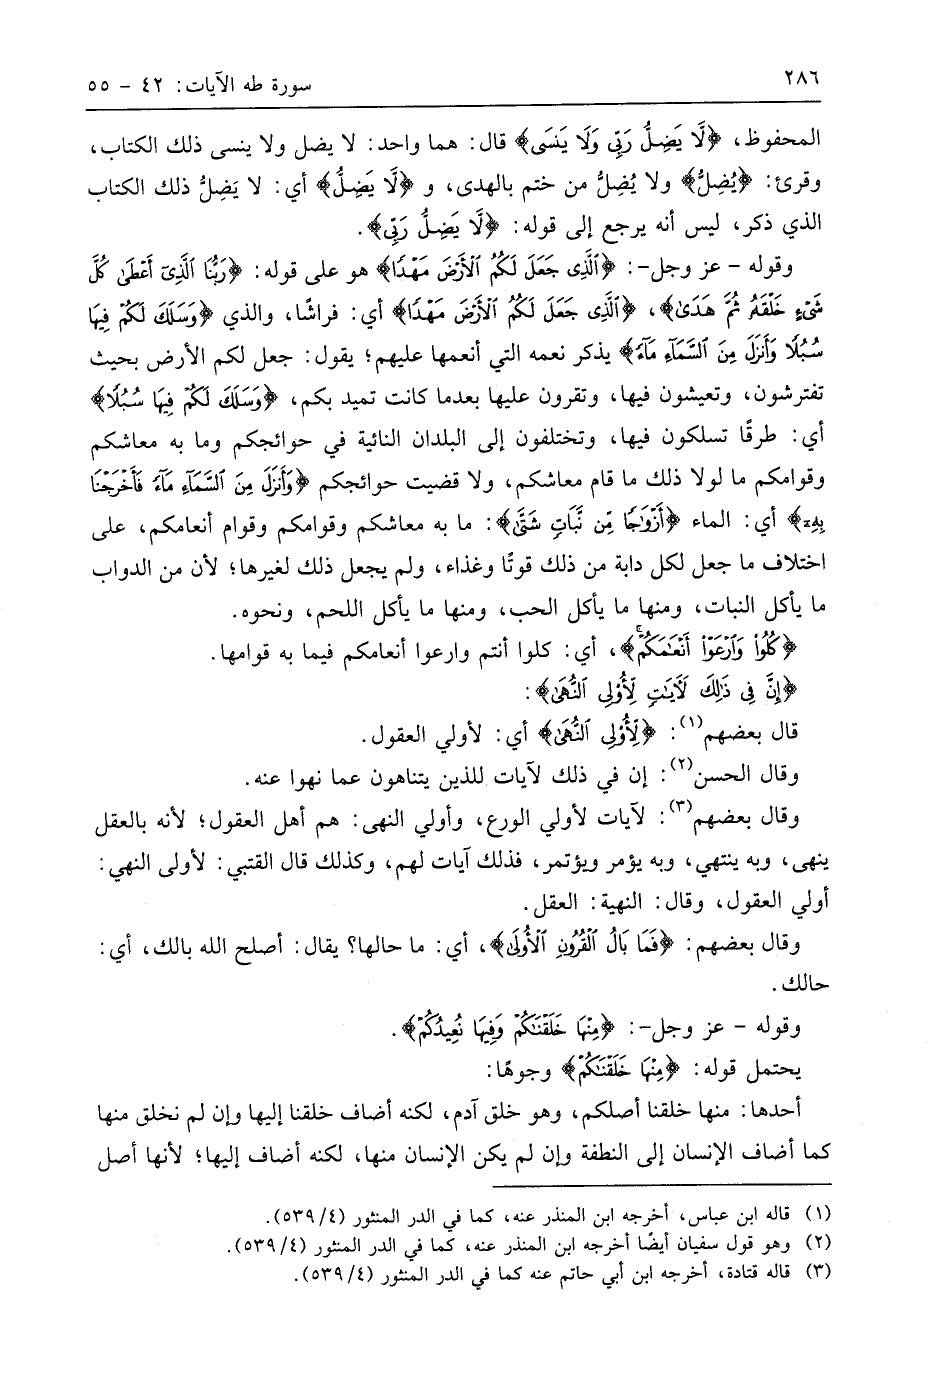 ٢٨٦
سورة طه الآيات: ٤٢ - ٥٥
المحفوظ، ﴿لَّا يَضِلُّ رَبِّى وَلَا يَنسَى﴾ قال: هما واحد: لا يضل ولا ينسى ذلك الكتاب،
وقرئ: ﴿يُضِلُّ﴾ ولا يُضِلُّ من ختم بالهدى، و ﴿لَّا يَضِلُّ﴾ أي: لا يَضِلُّ ذلك الكتاب
الذي ذكر، ليس أنه يرجع إلى قوله: ﴿لَّا يَضِلُّ رَبِّى﴾.
وقوله - عز وجل-: ﴿ٱلَّذِى جَعَلَ لَكُمُ ٱلْأَرْضَ مَهْدًا﴾ هو على قوله: ﴿رَبُّنَا ٱلَّذِىٓ أَعْطَىٰ كُلَّ
شَىْءٍ خَلْقَهُۥ ثُمَّ هَدَىٰ﴾، ﴿ٱلَّذِى جَعَلَ لَكُمُ ٱلْأَرْضَ مَهْدًا﴾ أي: فراشًا، والذي ﴿وَسَلَكَ لَكُمْ فِيهَا
سُبُلًا وَأَنزَلَ مِنَ ٱلسَّمَآءِ مَآءً﴾ يذكر نعمه التي أنعمها عليهم؛ يقول: جعل لكم الأرض بحيث
تفترشون، وتعيشون فيها، وتقرون عليها بعدما كانت تميد بكم، ﴿وَسَلَكَ لَكُمْ فِيهَا سُبُلًا﴾
أي: طرقًا تسلكون فيها، وتختلفون إلى البلدان النائية في حوائجكم وما به معاشكم
وقوامكم ما لولا ذلك ما قام معاشكم، ولا قضيت حوائجكم ﴿وَأَنزَلَ مِنَ ٱلسَّمَآءِ مَآءً فَأَخْرَجْنَا
بِهِۦٓ﴾ أي: الماء ﴿أَزْوَٰجًا مِّن نَّبَاتٍ شَتَّىٰ﴾: ما به معاشكم وقوامكم وقوام أنعامكم، على
اختلاف ما جعل لكل دابة من ذلك قوتًا وغذاء، ولم يجعل ذلك لغيرها؛ لأن من الدواب
ما يأكل النبات، ومنها ما يأكل الحب، ومنها ما يأكل اللحم، ونحوه.
﴿كُلُوا۟ وَٱرْعَوْا۟ أَنْعَٰمَكُمْ﴾، أي: كلوا أنتم وارعوا أنعامكم فيما به قوامها.
﴿إِنَّ فِى ذَٰلِكَ لَءَايَٰتٍ لِّأُو۟لِى ٱلنُّهَىٰ﴾:
قال بعضهم(١): ﴿لِّأُو۟لِى ٱلنُّهَىٰ﴾ أي: لأولي العقول.
وقال الحسن(٢): إن في ذلك لآيات للذين يتناهون عما نهوا عنه.
وقال بعضهم(٣): لآيات لأولي الورع، وأولي النهى: هم أهل العقول؛ لأنه بالعقل
ينهى، وبه ينتهي، وبه يؤمر ويؤتمر، فذلك آيات لهم، وكذلك قال القتبي: لأولى النهي:
أولي العقول، وقال: النهية: العقل.
وقال بعضهم: ﴿فَمَا بَالُ ٱلْقُرُونِ ٱلْأُولَىٰ﴾، أي: ما حالها؟ يقال: أصلح الله بالك، أي:
حالك.
وقوله - عز وجل-: ﴿مِنْهَا خَلَقْنَٰكُمْ وَفِيهَا نُعِيدُكُمْ﴾.
يحتمل قوله: ﴿مِنْهَا خَلَقْنَٰكُمْ﴾ وجوهًا:
أحدها: منها خلقنا أصلكم، وهو خلق آدم، لكنه أضاف خلقنا إليها وإن لم نخلق منها
كما أضاف الإنسان إلى النطفة وإن لم يكن الإنسان منها، لكنه أضاف إليها؛ لأنها أصل
(١) قاله ابن عباس، أخرجه ابن المنذر عنه، كما في الدر المنثور (٥٣٩/٤).
(٢) وهو قول سفيان أيضًا أخرجه ابن المنذر عنه، كما في الدر المنثور (٥٣٩/٤).
(٣) قاله قتادة، أخرجه ابن أبي حاتم عنه كما في الدر المنثور (٥٣٩/٤).